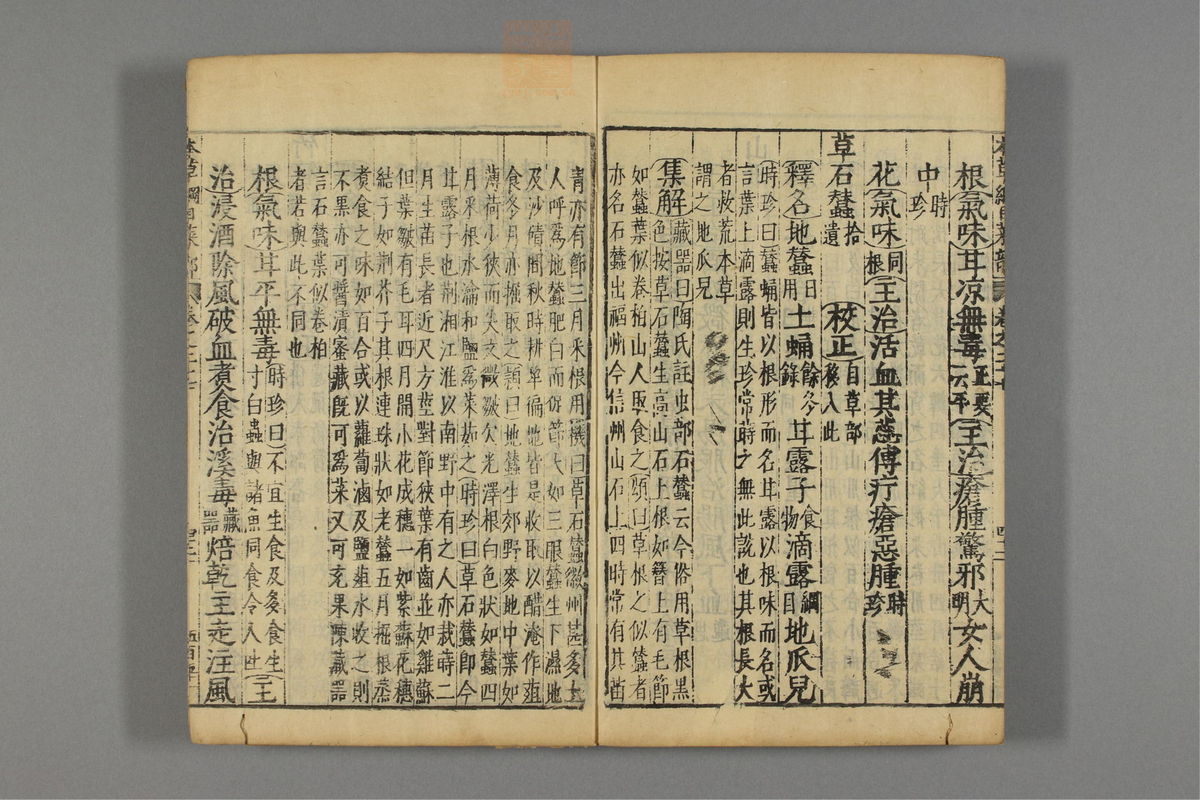 根氣味甘凉無毒正要云平主治瘡腫驚邪大明女人崩
中時珍
花氣味同根主治活血其蕊傅疔瘡惡腫時珍
草石蠶拾遺校正自草部移入此
釋名地蠶日用土蛹餘錄甘露子食物滴露綱目地瓜兒
時珍曰蠶蛹皆以根形而名甘露以根味而名或
言葉上滴露則生珍常蒔之無此說也其根長大
者救荒本草
謂之地瓜兒
集解藏器曰陶氏註虫部石蠶云今俗用草根黑
色按草石蠶生高山石上根如簪上有毛節
如蠶葉似卷柏山人取食之頌曰草根之似蠶者
亦名石蠶出福州今信州山石上四時常有其苗
青亦有節三月采根用機曰草石蠶徽州甚多土
人呼爲地蠶肥白而促節大如三眠蠶生下濕地
及沙磧間秋時耕犁徧地皆是收取以醋淹作葅
食冬月亦掘取之頴曰地蠶生郊野麥地中葉如
薄荷少狹而尖文微皺欠光澤根白色狀如蠶四
月采根水瀹和鹽爲菜茹之時珍曰草石蠶即今
甘露子也荆湘江淮以南野中有之人亦栽蒔二
月生苗長者近尺方莖對節狹葉有齒並如雞蘇
但葉皺有毛耳四月開小花成穗一如紫蘇花穗
結子如荆芥子其根連珠狀如老蠶五月掘根蒸
煮食之味如百合或以蘿蔔滷及鹽葅水收之則
不黑亦可醬漬蜜藏既可爲菜又可充果陳藏器
言石蠶葉似卷柏
者若與此不同也
根氣味甘平無毒時珍曰不宜生食及多食生寸白蟲與諸魚同食令人吐主
治浸酒除風破血煮食治溪毒藏器焙乾主走注風